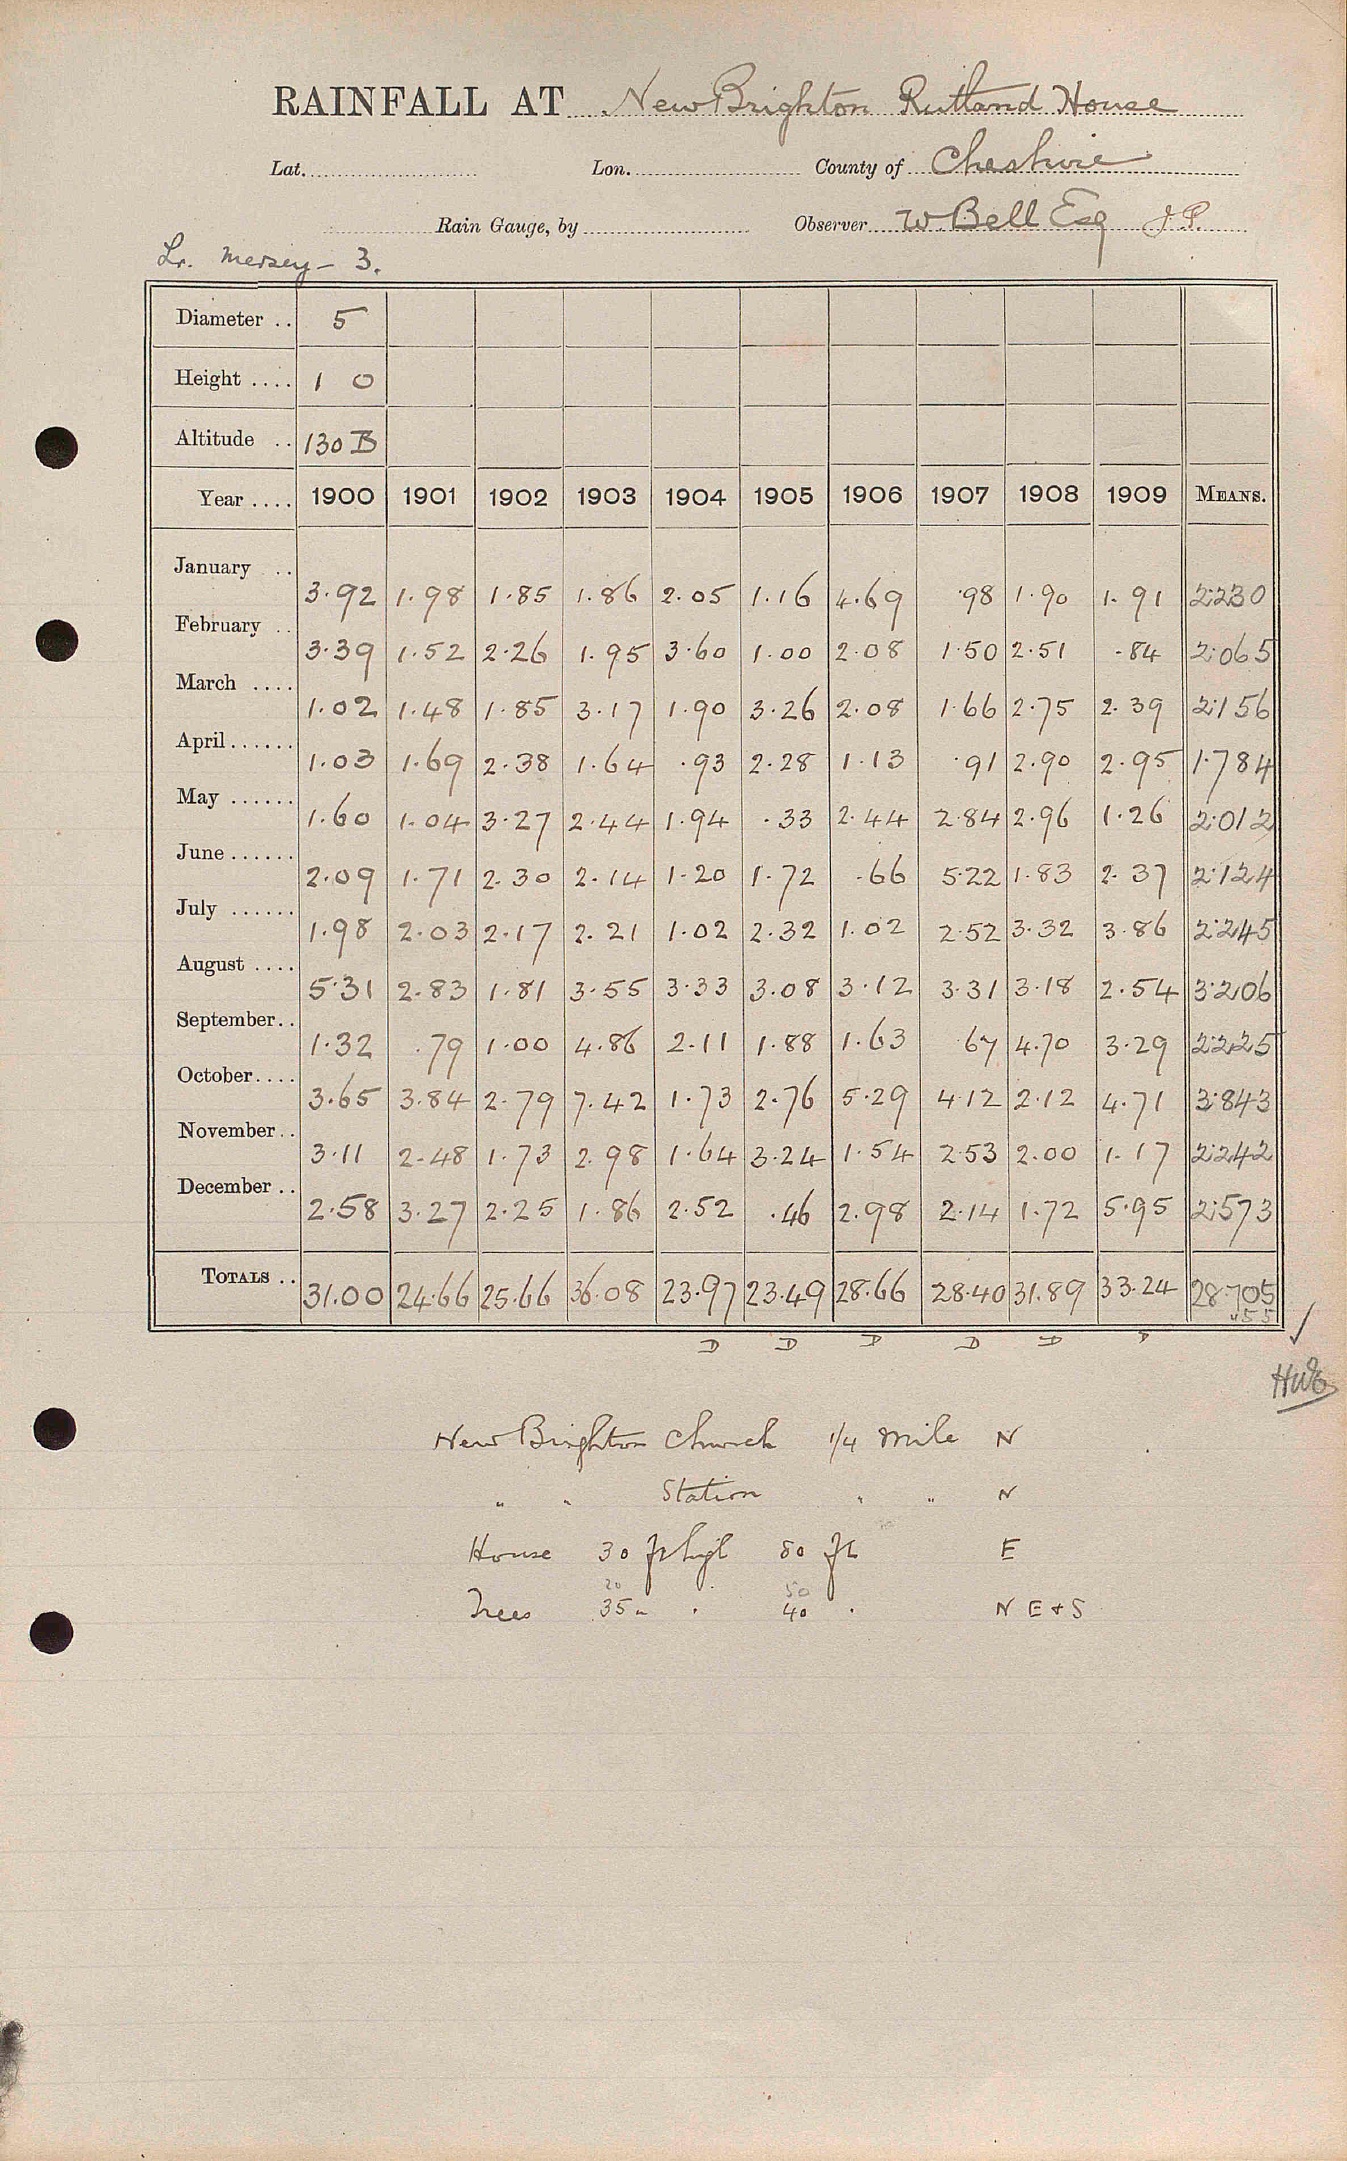 RAINFALL AT New Brighton Rutland House
Lat. Lon. County of Cheshire
Rain Gauge, by Observer W. Bell Esq J.P.
Lr. Mersey - 3.
Diameter .. 5
Height .... 1 0
Altitude .. 130 B
Year .... 1900 1901 1902 1903 1904 1905 1906 1907 1908 1909 MEANS.
January .. 3.92 1.98 1.85 1.86 2.05 1.16 4.69 .98 1.90 1.91 2.230
February .. 3.39 1.52 2.26 1.95 3.60 1.00 2.08 1.50 2.51 .84 2.065
March .... 1.02 1.48 1.85 3.17 1.90 3.26 2.08 1.66 2.75 2.39 2.156
April ...... 1.03 1.69 2.38 1.64 .93 2.28 1.13 .91 2.90 2.95 1.784
May ...... 1.60 1.04 3.27 2.44 1.94 .33 2.44 2.84 2.96 1.26 2.012
June ...... 2.09 1.71 2.30 2.14 1.20 1.72 .66 5.22 1.83 2.37 2.124
July ...... 1.98 2.03 2.17 2.21 1.02 2.32 1.02 2.52 3.32 3.86 2.245
August .... 5.31 2.83 1.81 3.55 3.33 3.08 3.12 3.31 3.18 2.54 3.206
September.. 1.32 .79 1.00 4.86 2.11 1.88 1.63 .67 4.70 3.29 2.225
October.... 3.65 3.84 2.79 7.42 1.73 2.76 5.29 4.12 2.12 4.71 3.843
November.. 3.11 2.48 1.73 2.98 1.64 3.24 1.54 2.53 2.00 1.17 2.242
December .. 2.58 3.27 2.25 1.86 2.52 .46 2.98 2.14 1.72 5.95 2.573
TOTALS .. 31.00 24.66 25.66 36.08 23.97 23.49 28.66 28.40 31.89 33.24 28.705
D D D D D D
New Brighton Church 1/4 mile N
" " Station " " N
House 30 ft high 80 ft E
20 50
Trees 35 " " 40 " N E + S